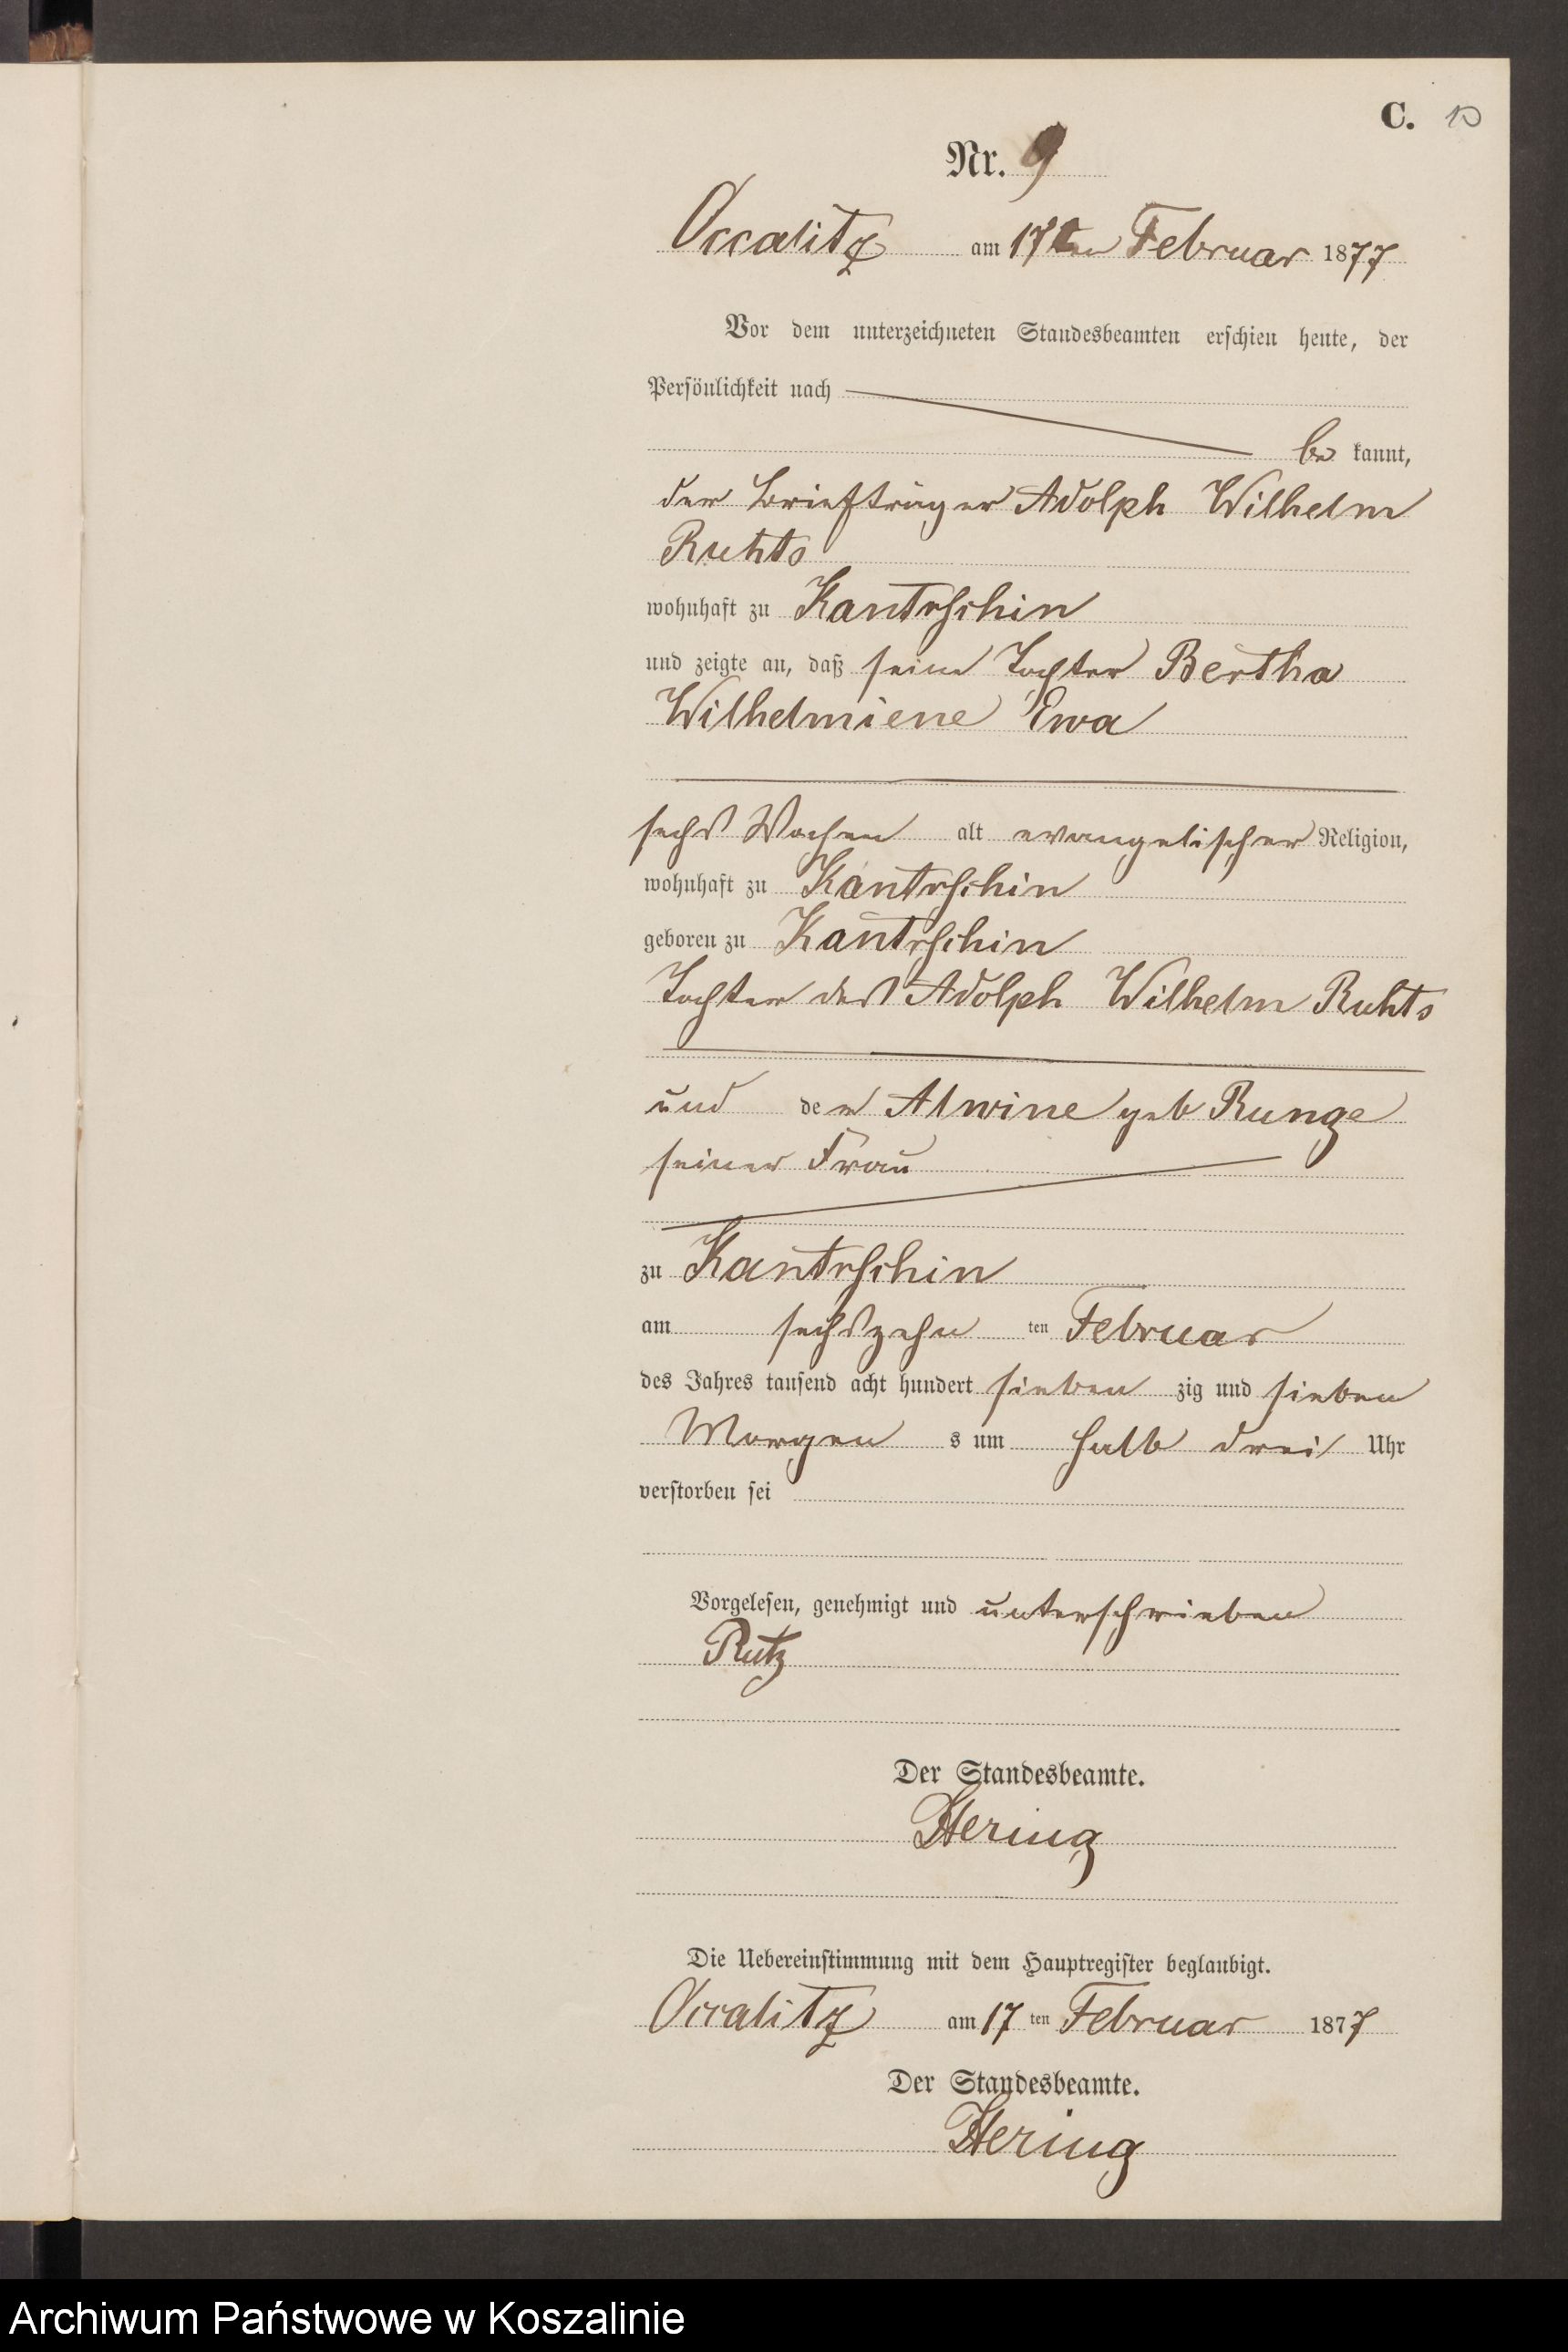 C. 10
Nr. 9
Occalitz am 17ten Februar 1877
Vor dem unterzeichneten Standesbeamten erschien heute, der
Persönlichkeit nach
be kannt,
der Briefträger Adolph Wilhelm
Ruhts
wohnhaft zu Kantrschin
und zeigte an, daß seine Tochter Bertha
Wilhelmiene Ewa
sechs Wochen alt evangelischer Religion,
wohnhaft zu Kantrschin
geboren zu Kantrschin
Tochter des Adolph Wilhelm Ruhts
und der Alwine geb Runge
seiner Frau
zu Kantrschin
am sechszehn ten Februar
des Jahres tausend acht hundert sieben zig und sieben
Morgen s um halb drei Uhr
verstorben sei
Vorgelesen, genehmigt und unterschrieben
Rutz
Der Standesbeamte.
Hering
Die Uebereinstimmung mit dem Hauptregister beglaubigt.
Occalitz am 17 ten Februar 1877
Der Standesbeamte.
Hering
Archiwum Państwowe w Koszalinie